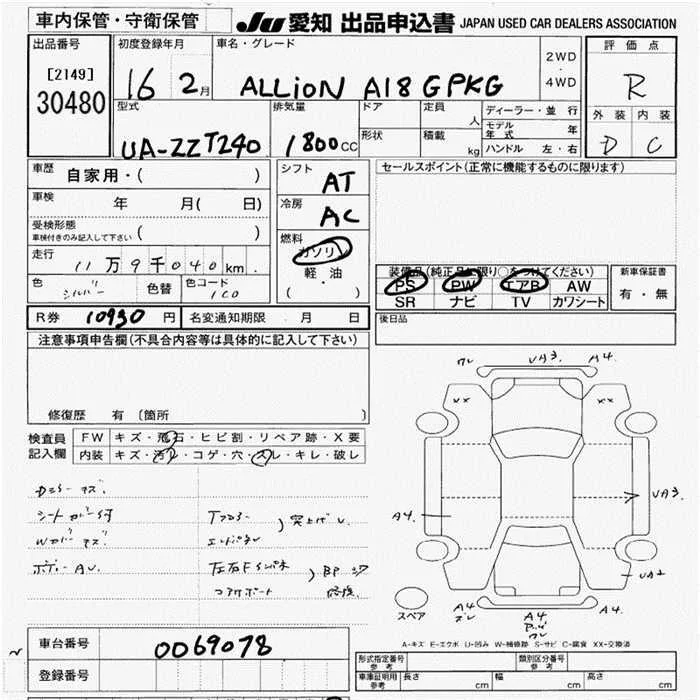 車内保管・守衛保管
JU 愛知 出品申込書 JAPAN USED CAR DEALERS ASSOCIATION
出品番号
[2149]
30480
初度登録年月
16 2月
車名・グレード
ALLION A18 GPKG
2WD
4WD
評価点
R
外装 内装
D C
型式
UA-ZZT240
排気量
1800cc
ドア
形状
定員 人
積載 kg
ディーラー・並行
モデル年式 年
ハンドル 左・右
車歴 自家用・( )
車検 年 月( 日)
受検形態
車検付きのみ記入して下さい ( )
走行 11万9千040km.
色 シルバー 色替 色コード 1C0
シフト AT
冷房 AC
燃料
ガソリン
軽・油
( ・ )
セールスポイント(正常に機能するものに限ります)
装備品(純正品に限り○をつけてください)
PS PW エアB AW
SR ナビ TV カワシート
新車保証書
有・無
R券 10930円 名変通知期限 月 日
後日品
注意事項申告欄(不具合内容等は具体的に記入して下さい)
修復歴 有 〔箇所
検査員
記入欄
FW キズ・飛石・ヒビ割・リペア跡・X要
内装 キズ・汚レ・コゲ・穴・スレ・キレ・破レ
シートカバー付
ボディーAU.
突上げ
エンドパネル
コアサポート
ワレ UA3. A4.
XX XX
A4. UA3.
UA2
スペア
A4 A4 A4.
A-キズ E-エクボ U-凹み W-補修跡 S-サビ C-腐食 XX-交換済
車台番号 0069078
登録番号
形式指定番号
参考
類別区分番号
参考
車庫証明用
参考
長さ cm 幅 cm 高さ cm